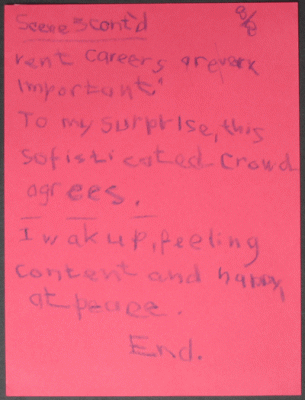 Scene 3 cont'd
rent careers are very
important"
To my surprise, this
sofisticated crowd
agrees.
I wak up, feeling
content and happy,
at peace.
End.